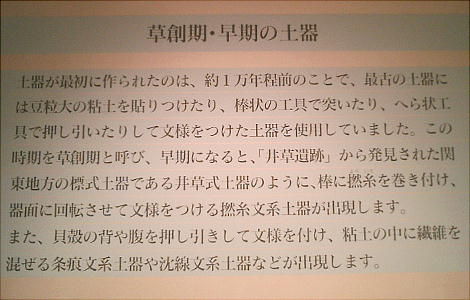 草創期・早期の土器
土器が最初に作られたのは、約１万年程前のことで、最古の土器に
は豆粒大の粘土を貼りつけたり、棒状の工具で突いたり、へら状工
具で押し引いたりして文様をつけた土器を使用していました。この
時期を草創期と呼び、早期になると、「井草遺跡」から発見された関
東地方の標式土器である井草式土器のように、棒に撚糸を巻き付け、
器面に回転させて文様をつける撚糸文系土器が出現します。
また、貝殻の背や腹を押し引きして文様を付け、粘土の中に繊維を
混ぜる条痕文系土器や沈線文系土器などが出現します。